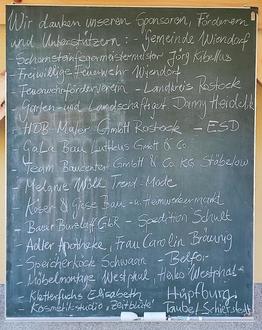 Wir danken unseren Sponsoren, Förderern
und Unterstützern: - Gemeinde Wiendorf
- Schornsteinfegermeister Jörg Kibellus
- Freiwillige Feuerwehr Wiendorf
- Feuerwehrförderverein - Landkreis Rostock
- Garten- und Landschaftsgest. Danny Heidelk
- HDB-Maler GmbH Rostock - ESD
- GaLa Bau GmbH & Co.
- Team Baucenter GmbH & Co. KG Stäbelow
- Melanie Wölk Trend-Mode
- Käser & Giese Bau- u. Heimwerkermarkt
- Bauer Burstaff GbR - Spedition Schult
- Adler Apotheke, Frau Carolin Bräunig
- Speicherköck Schwaan - Belfor
- Möbelmontage Westphal, Heiko Westphal
- Kletterfuchs Elisabeth
Hüpfburg
- Kosmetikstudio "Zeitblüte"